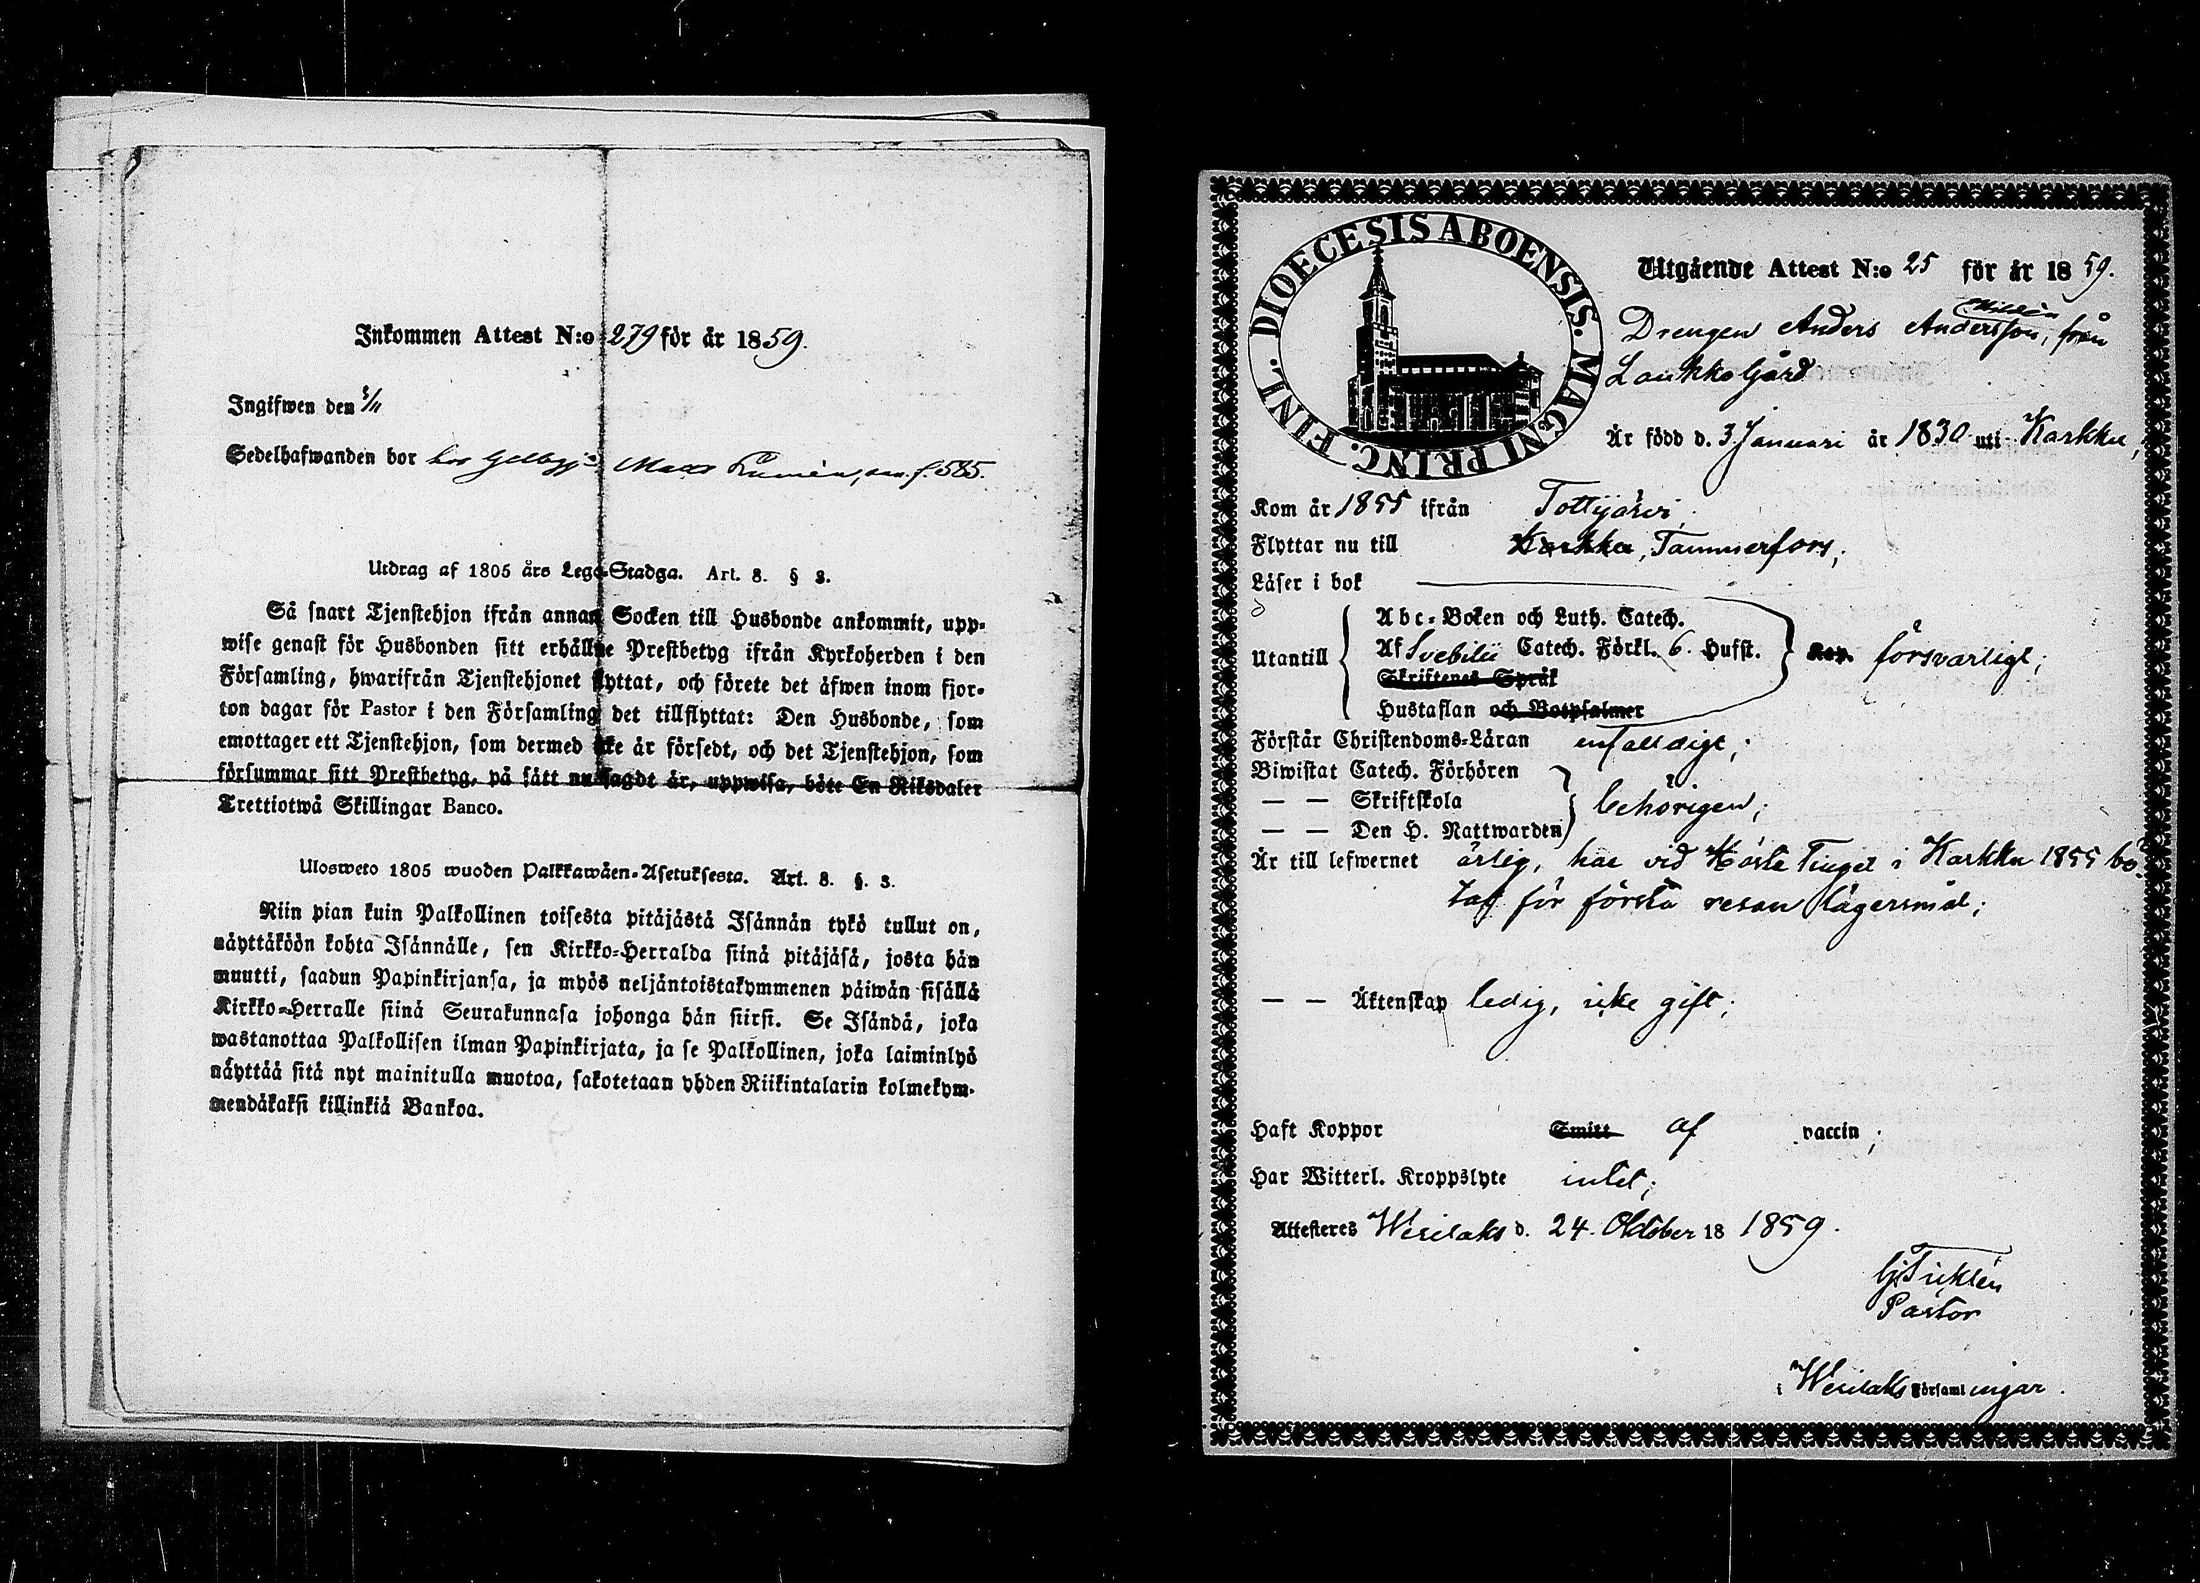 Inkommen Attest N:o 279 för år 1859.
Ingifwen den 5/11
Sedelhafwanden bor hos Matts f. 585.
Utdrag af 1805 års Lego-Stadga. Art. 8. § 3.
Så snart Tjenstehjon ifrån annan Socken till Husbonde ankommit, upp-
wise genast för Husbonden sitt erhållne Prestbetyg ifrån Kyrkoherden i den
Församling, hwarifrån Tjenstehjonet flyttat, och förete det äfwen inom fjor-
ton dagar för Pastor i den Församling det tillflyttat: Den Husbonde, som
emottager ett Tjenstehjon, som dermed icke är försedt, och det Tjenstehjon, som
försummar sitt Prestbetyg, på sätt nu sagdt är, uppwisa, böte En Riksdaler
Trettiotwå Skillingar Banco.
Ulosweto 1805 wuoden Palkkawäen-Asetuksesta. Art. 8. §. 3.
Niin pian kuin Palkollinen toisesta pitäjästä Isännän tykö tullut on,
näyttäköön kohta Isännälle, sen Kirkko-Herralda siinä pitäjäsä, josta hän
muutti, saadun Papinkirjansa, ja myös neljäntoistakymmenen päiwän sisällä
Kirkko-Herralle siinä Seurakunnasa johonga hän siirsi. Se Isändä, joka
wastanottaa Palkollisen ilman Papinkirjata, ja se Palkollinen, joka laiminlyö
näyttää sitä nyt mainitulla muotoa, sakotetaan yhden Riikintalarin kolmekym-
mendäkaksi killinkiä Bankoa.
DIOECESIS ABOENSIS. MAGNI PRINC. FINL.
Utgående Attest N:o 25 för år 1859.
Drengen Anders Andersson, från
Laukko Gård
Är född d. 3 Januari år 1830 uti Karkku,
Kom år 1855 ifrån Tottijärvi,
Flyttar nu till Karkku, Tammerfors;
Läser i bok
Utantill
Abc-Boken och Luth. Catech.
Af Svebilii Catech. Förkl. 6. Hufst.
Skriftenes Språk
Hustaflan och Botpsalmer
Kap. försvarligt;
Förstår Christendoms-Läran enfalldigt;
Biwistat Catech. Förhören
— — Skriftskola
— — Den H. Nattwarden
behörigen;
Är till lefwernet ärlig, har vid Höste Tinget i Karkku 1855 bö-
tat för första resan lägersmål;
— — Äktenskap ledig, icke gift;
Haft Koppor Smitt af vaccin;
Har Witterl. Kroppslyte intet;
Attesteres Wesilaks d. 24. Oktober 18 1859.
Pastor
i Wesilaks Församlingar.